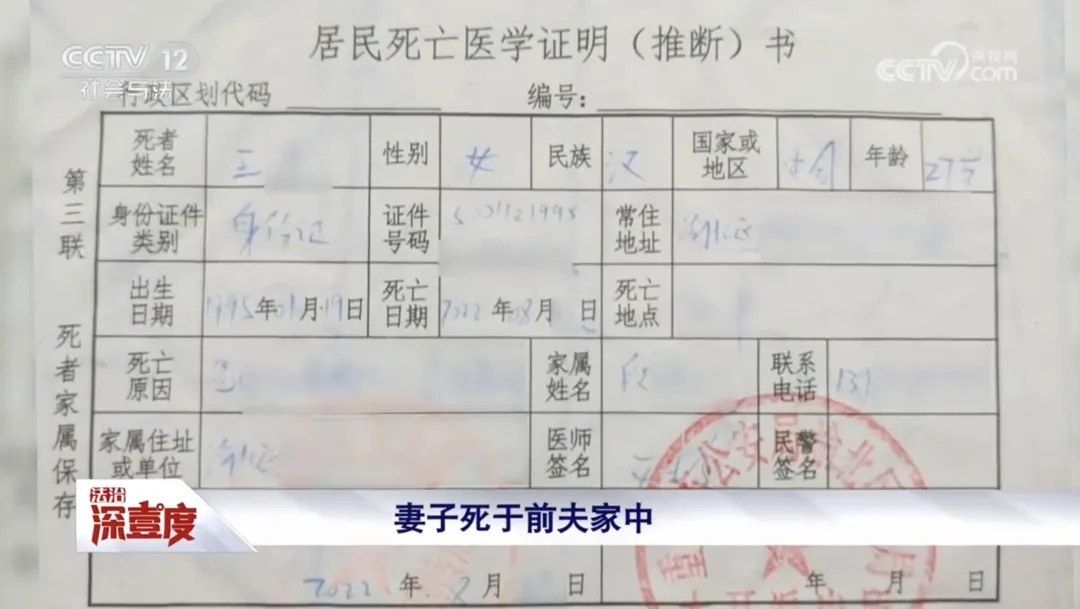 CCTV 12
社会与法
央视网
CCTV.com
居民死亡医学证明（推断）书
行政区划代码 编号：
第三联 死者家属保存
死者姓名 王 性别 女 民族 汉 国家或地区 中国 年龄 27岁
身份证件类别 身份证 证件号码 常住地址
出生日期 1995年01月19日 死亡日期 2022年08月 日 死亡地点
死亡原因 家属姓名 段 联系电话 137
家属住址或单位 医师签名 民警签名
公安局
法治深壹度
妻子死于前夫家中
2022年8月 日 年 月 日